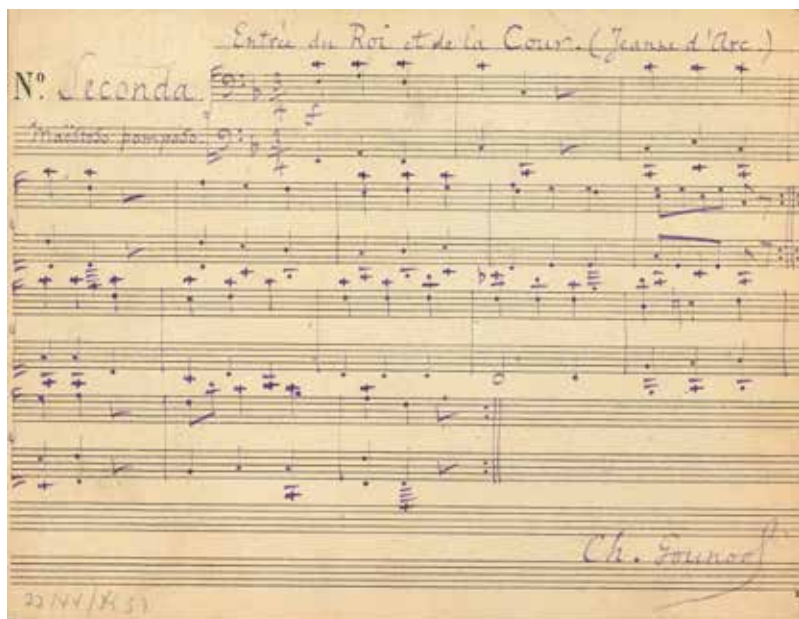 Entrée du Roi et de la Cour. (Jeanne d'Arc.)
Nº. Seconda.
Maëstoso pomposo.
f
Ch. Gounod